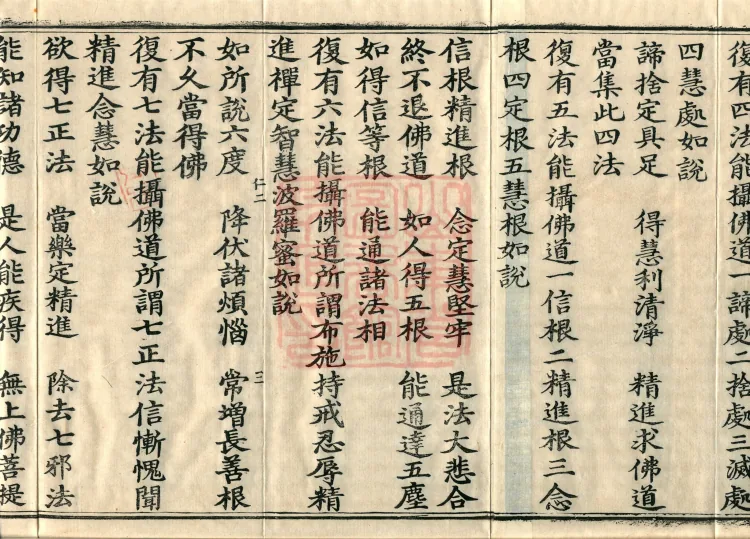 復有四法能攝佛道一諦處二捨處三滅處
四慧處如說
諦捨定具足　得慧利清淨　精進求佛道
當集此四法
復有五法能攝佛道一信根二精進根三念
根四定根五慧根如說
信根精進根　念定慧堅牢　是法大悲合
終不退佛道　如人得五根　能通達五塵
如得信等根　能通諸法相
復有六法能攝佛道所謂布施持戒忍辱精
進禪定智慧波羅蜜如說
如所說六度　降伏諸煩惱　常增長善根
不久當得佛
仁二
三
復有七法能攝佛道所謂七正法信慚愧聞
精進念慧如說
欲得七正法　當樂定精進　除去七邪法
能知諸功德　是人能疾得　無上佛菩提